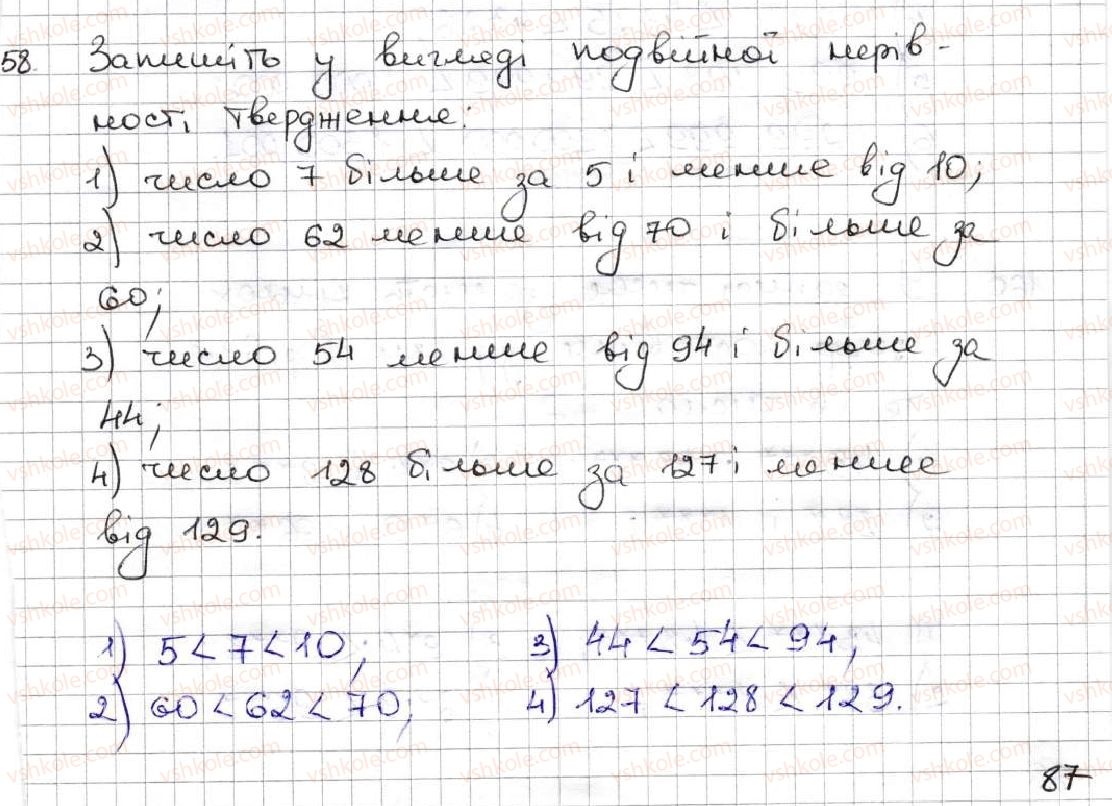 58. Запишіть у вигляді подвійної нерів-
ності твердження:
1) число 7 більше за 5 і менше від 10;
2) число 62 менше від 70 і більше за
60;
3) число 54 менше від 94 і більше за
44;
4) число 128 більше за 127 і менше
від 129.
1) 5 < 7 < 10; 3) 44 < 54 < 94;
2) 60 < 62 < 70; 4) 127 < 128 < 129.
87